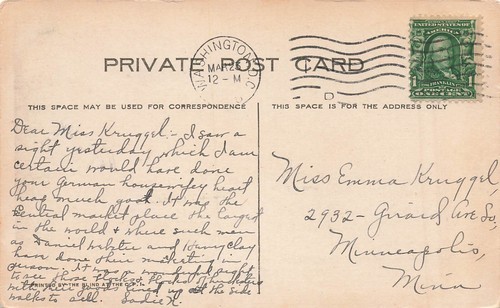 WASHINGTON, D.C.
MAR
12-M
D
UNITED STATES OF AMERICA
POSTAGE
ONE CENT
PRIVATE POST CARD
THIS SPACE MAY BE USED FOR CORRESPONDENCE
THIS SPACE IS FOR THE ADDRESS ONLY
Dear Miss Kruggel:- I saw a
sight yesterday which I am
certain would have done
your German housewifey heart
heap much good. It was the
Central market place the largest
in the world & where such men
as Daniel Webster and Henry Clay
have done their marketing in
person. It was a wonderful sight
to see
PRINTED BY THE BLIND AT THE
with lined up at the side
walk to sell. Sadie K.
Miss Emma Kruggel
2932- Girard Ave So,
Minneapolis,
Minn